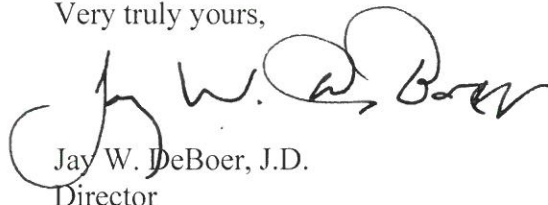 Very truly yours,
Jay W. DeBoer
Jay W. DeBoer, J.D.
Director